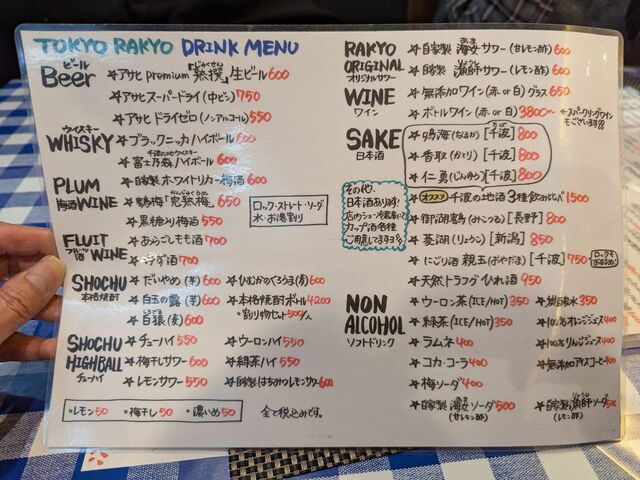 TOKYO RAKYO DRINK MENU
ビール
Beer
☆アサヒ premium「熟撰」生ビール600
じゅくせん
☆アサヒ スーパードライ(中ビン)750
☆アサヒ ドライゼロ(ノンアルコール)550
ウイスキー
WHISKY
☆ブラックニッカ ハイボール 600
☆富士乃森ハイボール 600
PLUM
梅酒 WINE
☆自家製 ホワイトリカー梅酒600
☆鶴梅「完熟梅」650
かんじゅくうめ
☆黒糖入り梅酒550
ロック・ストレート・ソーダ
水・お湯割り
FLUIT
フルーツ酒 WINE
☆あらごしもも酒700
☆ゆず酒700
SHOCHU
本格焼酎
☆だいやめ(芋)600
☆ひむかのくろうま(麦)600
☆白玉の露(芋)600
☆本格焼酎ボトル4200
☆白猿(麦)600
・割り物セット500/人
SHOCHU
HIGHBALL
チューハイ
☆チューハイ550
☆ウーロンハイ550
☆梅干しサワー600
☆緑茶ハイ550
☆レモンサワー550
☆自家製はちみつレモンサワー600
・レモン50 ・梅干し50 ・濃いめ50
全て税込みです。
RAKYO
ORIGINAL
オリジナルサワー
☆自家製 海女サワー(甘レモン酢)600
あま
☆自家製 漁師サワー(レモン酢)600
WINE
ワイン
☆無添加ワイン(赤 or 白)グラス650
☆ボトルワイン(赤 or 白)3800〜
☆スパークリングワイン
もございます!!
SAKE
日本酒
☆鳴海(なるか)[千波]800
ちば
☆香取(かとり)[千波]800
☆仁勇(じんゆう)[千波]800
その他、
日本酒あります!
店内ショー冷蔵庫にも
カップ酒各種
ご用意してます!!
☆オススメ 千波の地酒 3種飲み比べ1500
☆御湖鶴(みこつる)[長野]800
☆菱湖(りょうこ)[新潟]850
☆にごり酒 親玉(おやだま)[千波]750
☆天然トラフグひれ酒950
NON
ALCOHOL
ソフトドリンク
☆ウーロン茶(ICE/HOT)350
☆炭酸水350
☆緑茶(ICE/HOT)350
☆100%オレンジジュース400
☆ラムネ400
☆100%りんごジュース400
☆コカ・コーラ400
☆無添加アイスコーヒー400
☆梅ソーダ400
☆自家製 海女ソーダ500
(甘レモン酢)
☆自家製漁師ソーダ
(レモン酢)